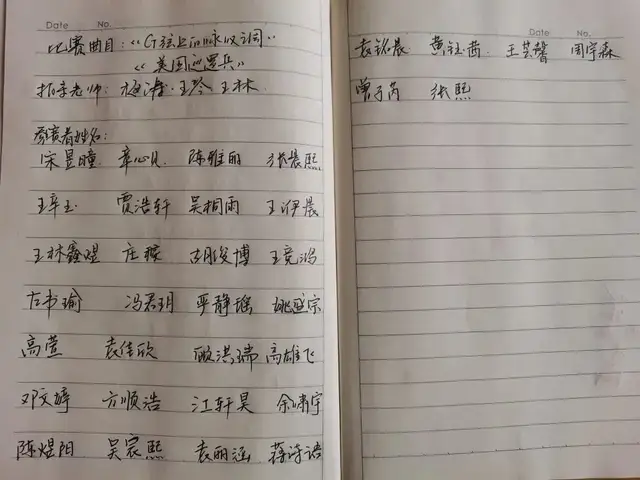 Date No.
比赛曲目:《G弦上的咏叹调》
《美国巡逻兵》
指导老师: 王琴 王林
参赛者姓名:
宋昱瞳 章心贝 陈雅丽 张晨熙
王梓玉 贾浩轩 吴桐雨 王伊晨
王林鑫煜 庄稼 王竞鸿
左书瑜 冯君玥 严静瑶 姚盛宗
高萱 袁佳欣 殷洪瑞 高雄飞
邓文婷 方顺浩 江轩昊 余啸宇
陈煜阳 吴宸熙 袁丽涵 蒋诗语
Date No.
袁铭晨 黄钰茜 王芸馨 周宇森
曾子芮 张熙